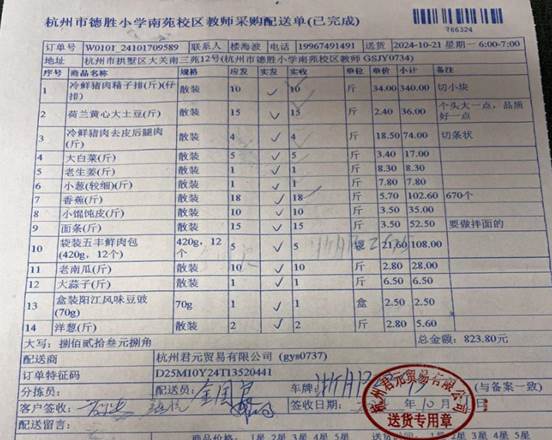 杭州市德胜小学南苑校区教师采购配送单(已完成)
766324
订单号 W0101_24101709589 联系人 楼海波 电话 19967491491 送货 2024-10-21 星期一 6:00-7:00
地址 杭州市拱墅区大关南三苑12号(杭州市德胜小学南苑校区教师 GSJY0734)
序号 商品名称 规格 应发 实发 实收 单位 单价 小计 备注
1 冷鲜猪肉精子排(斤)(仔排) 散装 10 ✓ 10 斤 34.00 340.00 切小块
2 荷兰黄心大土豆(斤) 散装 15 ✓ 15 斤 2.40 36.00 个头大一点，品质好一点
3 冷鲜猪肉去皮后腿肉(斤) 散装 4 ✓ 4 斤 18.50 74.00 切条状
4 大白菜(斤) 散装 5 ✓ 5 斤 3.40 17.00
5 老生姜(斤) 散装 1 ✓ 1 斤 8.30 8.30
6 小葱(较细)(斤) 散装 1 ✓ 1 斤 7.80 7.80
7 香蕉(斤) 散装 18 ✓ 18 斤 5.70 102.60 670个
8 小馄饨皮(斤) 散装 10 ✓ 10 斤 3.50 35.00
9 面条(斤) 散装 15 ✓ 15 斤 3.50 52.50 要做拌面的
10 袋装五丰鲜肉包(420g，12个) 420g，12个 5 ✓ 5 袋 21.60 108.00
11 老南瓜(斤) 散装 10 ✓ 10 斤 2.80 28.00
12 大蒜子(斤) 散装 1 ✓ 1 斤 6.50 6.50
13 盒装阳江风味豆豉(70g) 70g 1 ✓ 1 盒 2.50 2.50
14 洋葱(斤) 散装 2 ✓ 2 斤 2.80 5.60
大写：捌佰贰拾叁元捌角 总金额：823.80元
配送商 杭州君元贸易有限公司 (gys0737)
订单特征码 D25M10Y24T13520441
分拣员： 配送员： 车牌： (与备案一致)
客户签收： 签收日期： 年10月 日
杭州君元贸易有限公司
送货专用章
配送留言：
商品价格： 1星 2星 3星 4星 5星